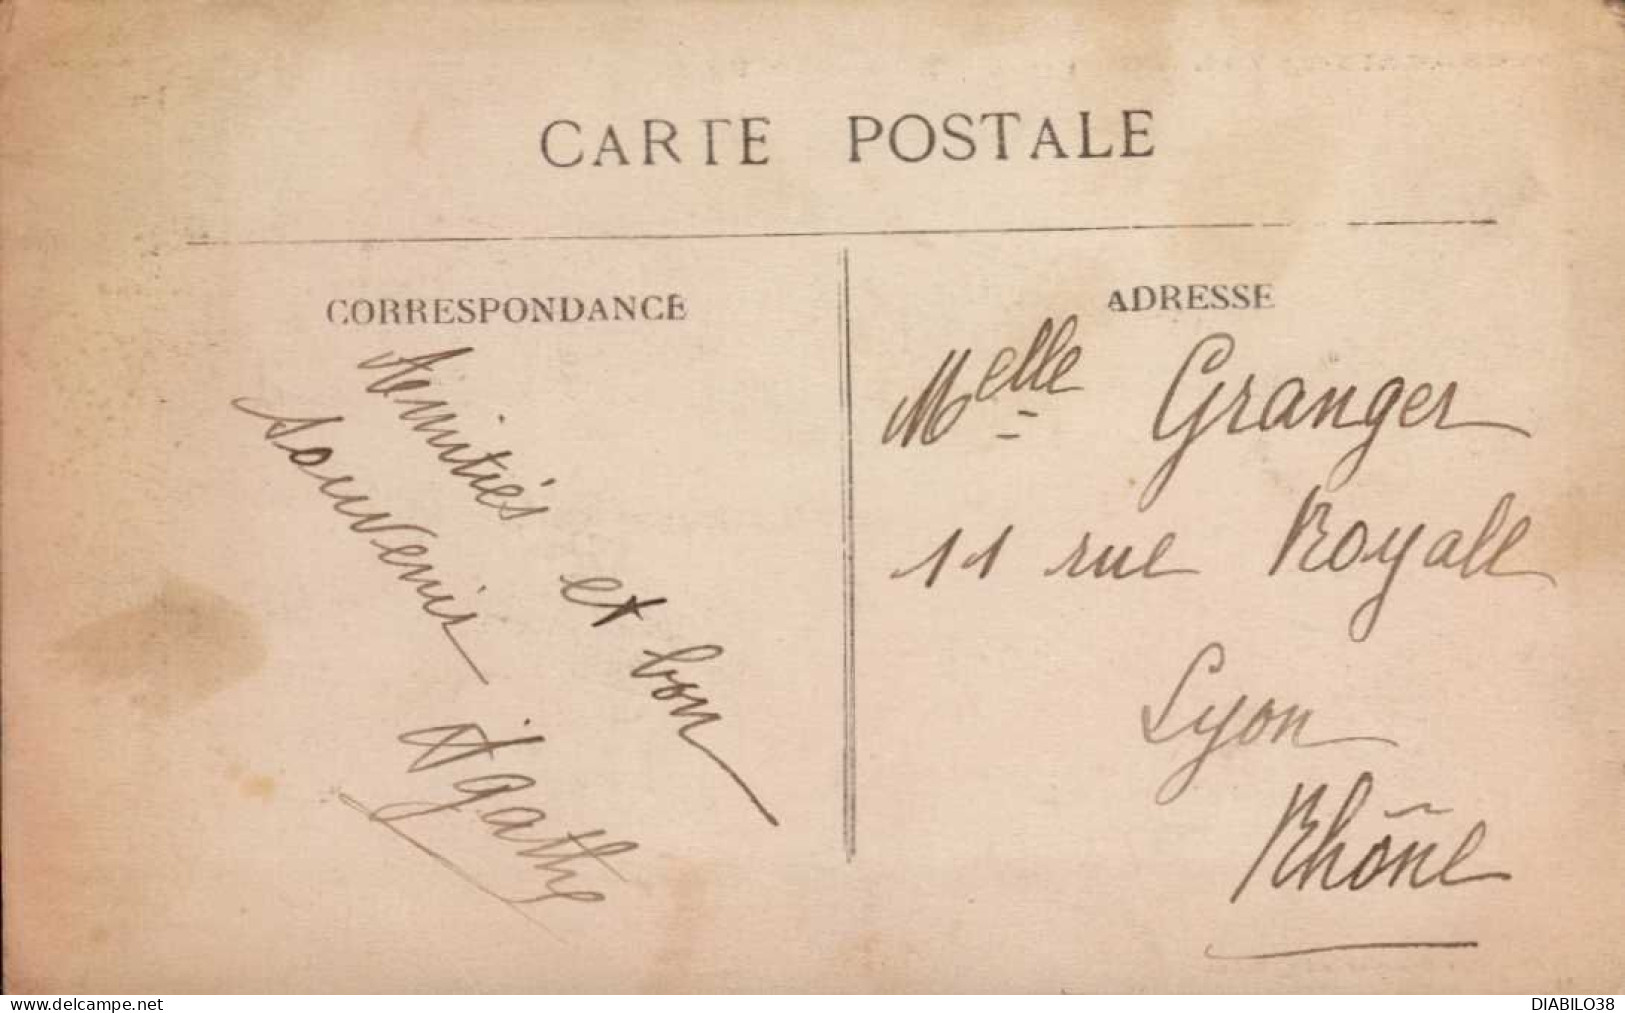 CARTE POSTALE
CORRESPONDANCE
Amitiés et bon
souvenir
Agathe
ADRESSE
Melle Granger
11 rue Royale
Lyon
Rhône
www.delcampe.net
DIABILO38